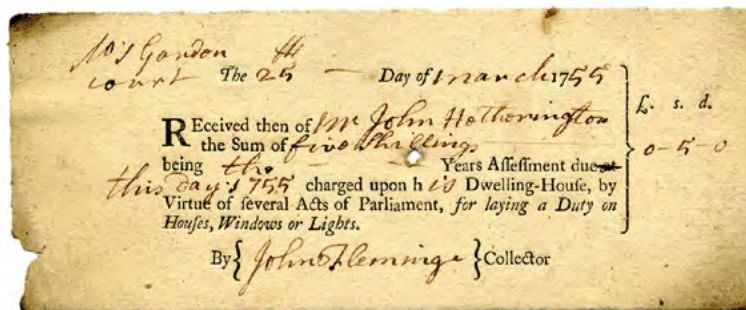 No 1 Gardon
court The 25th — Day of march 1755
£. s. d.
REceived then of Mr John Hetherington
the Sum of five shillings 0-5-0
being the Years Aſſeſſment due at
this day 1755 charged upon his Dwelling-Houſe, by
Virtue of ſeveral Acts of Parliament, for laying a Duty on
Houſes, Windows or Lights.
By { John Fleminge } Collector